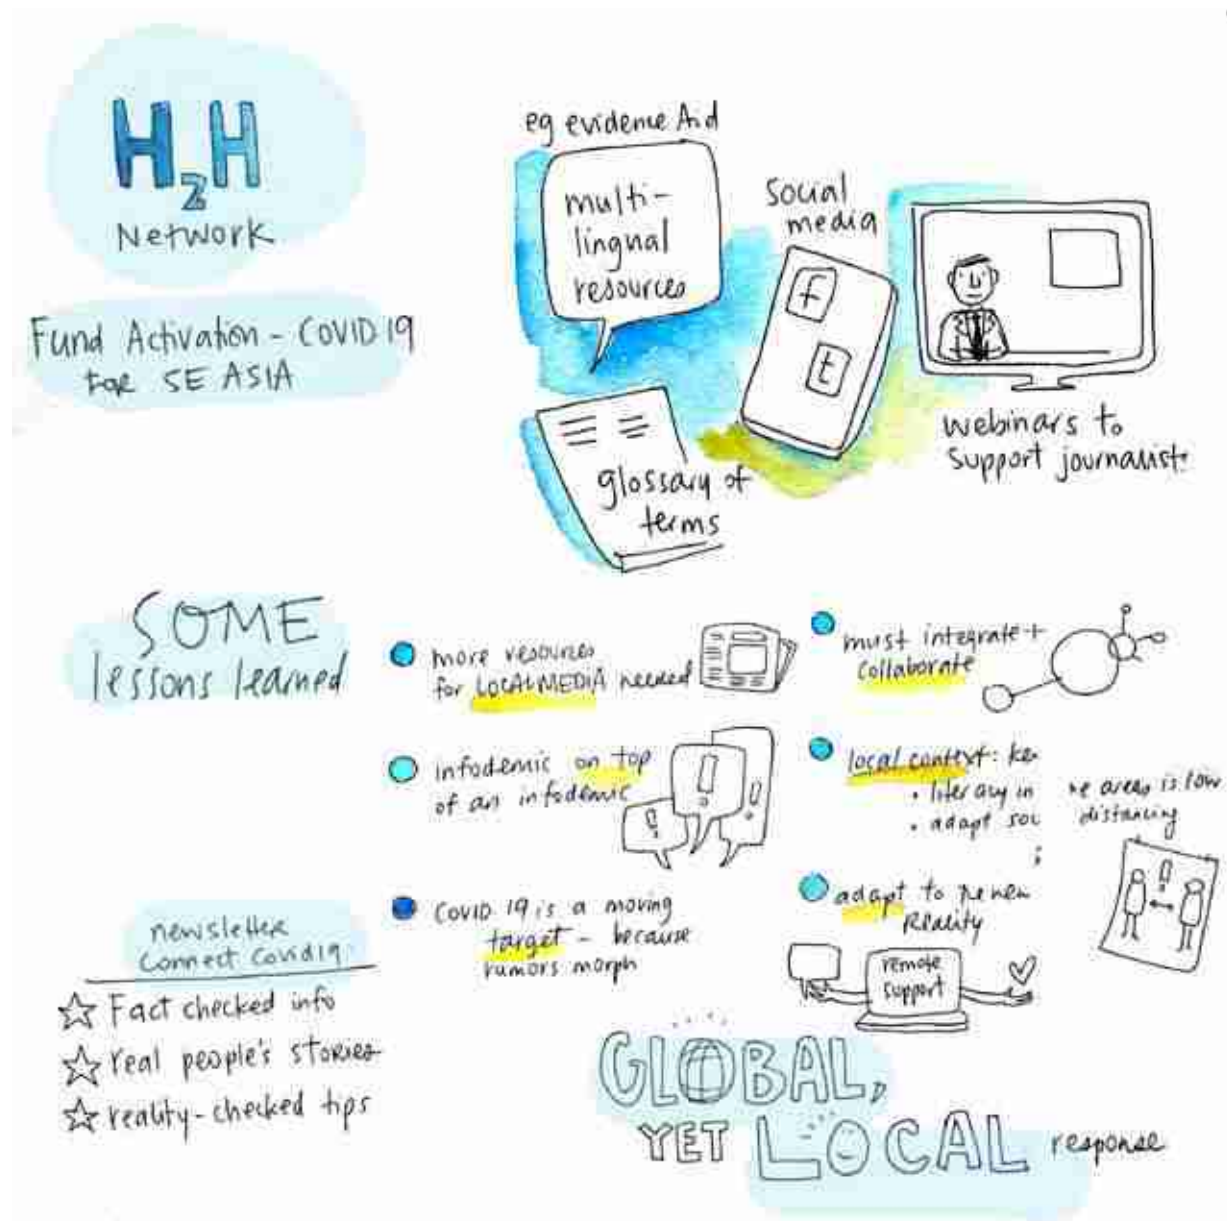 H2H
Network
Fund Activation - COVID 19
for SE ASIA
eg evidence Aid
multi-
lingual
resources
social
media
f
t
webinars to
support journalists
glossary of
terms
SOME
lessons learned
more resources
for LOCAL MEDIA needed
infodemic on top
of an infodemic
COVID 19 is a moving
target - because
rumors morph
must integrate +
collaborate
local context:
literacy in areas is low
adapt distancing
adapt to new
Reality
remote
support
newsletter
Connect Covid19
Fact checked info
real people's stories
reality-checked tips
GLOBAL,
YET LOCAL response